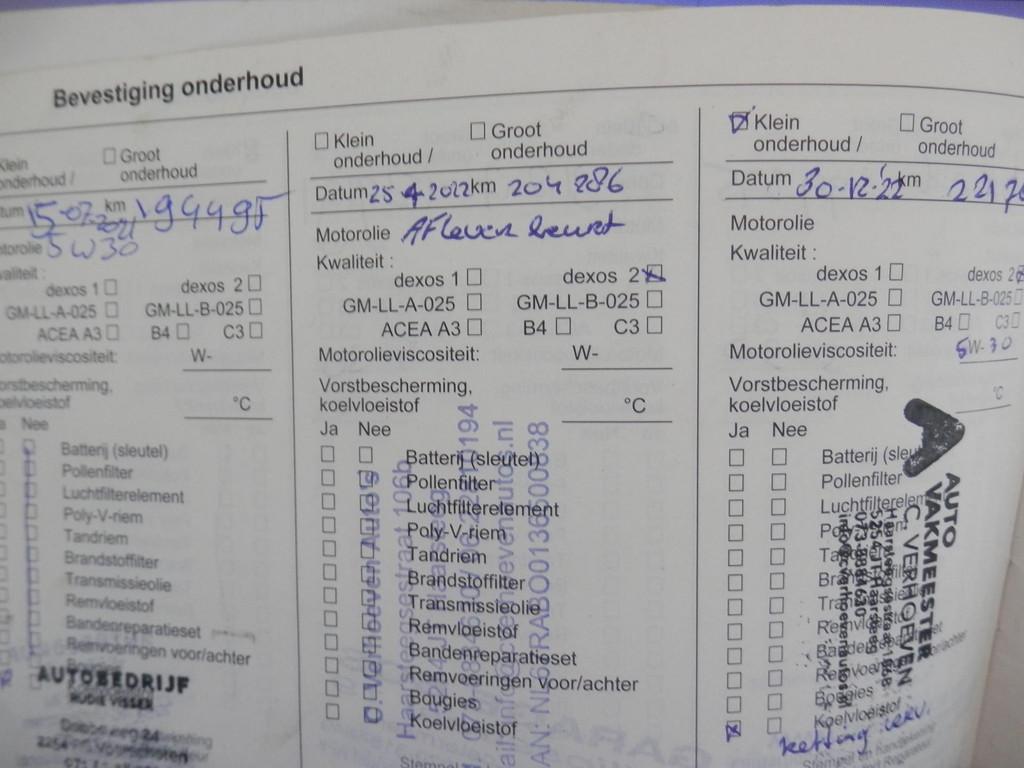 Bevestiging onderhoud
Klein onderhoud /
Groot onderhoud
15-02-2021 km 194495
Motorolie 5W30
Kwaliteit :
dexos 1 dexos 2
GM-LL-A-025 GM-LL-B-025
ACEA A3 B4 C3
Motorolieviscositeit: W-
Vorstbescherming,
koelvloeistof °C
Nee
Batterij (sleutel)
Pollenfilter
Luchtfilterelement
Poly-V-riem
Tandriem
Brandstoffilter
Transmissieolie
Remvloeistof
Bandenreparatieset
Remvoeringen voor/achter
Bougies
AUTOBEDRIJF
RUDIE VISSER
Klein
onderhoud /
Groot
onderhoud
Datum 25 4 2022 km 204 286
Motorolie Aflever beurt
Kwaliteit :
dexos 1 dexos 2
GM-LL-A-025 GM-LL-B-025
ACEA A3 B4 C3
Motorolieviscositeit: W-
Vorstbescherming,
koelvloeistof °C
Ja Nee
Batterij (sleutel)
Pollenfilter
Luchtfilterelement
Poly-V-riem
Tandriem
Brandstoffilter
Transmissieolie
Remvloeistof
Bandenreparatieset
Remvoeringen voor/achter
Bougies
Koelvloeistof
Stempel
Haarsteegsestraat 106b
Klein
onderhoud /
Groot
onderhoud
Datum 30-12-'22 km
Motorolie
Kwaliteit :
dexos 1 dexos 2
GM-LL-A-025 GM-LL-B-025
ACEA A3 B4 C3
Motorolieviscositeit: 5W-30
Vorstbescherming,
koelvloeistof °C
Ja Nee
Batterij (sleu
Pollenfilter
Luchtfilterelem
Bougies
Koelvloeistof
ketting serv.
AUTO
VAKMEESTER
C. VERHOEVEN